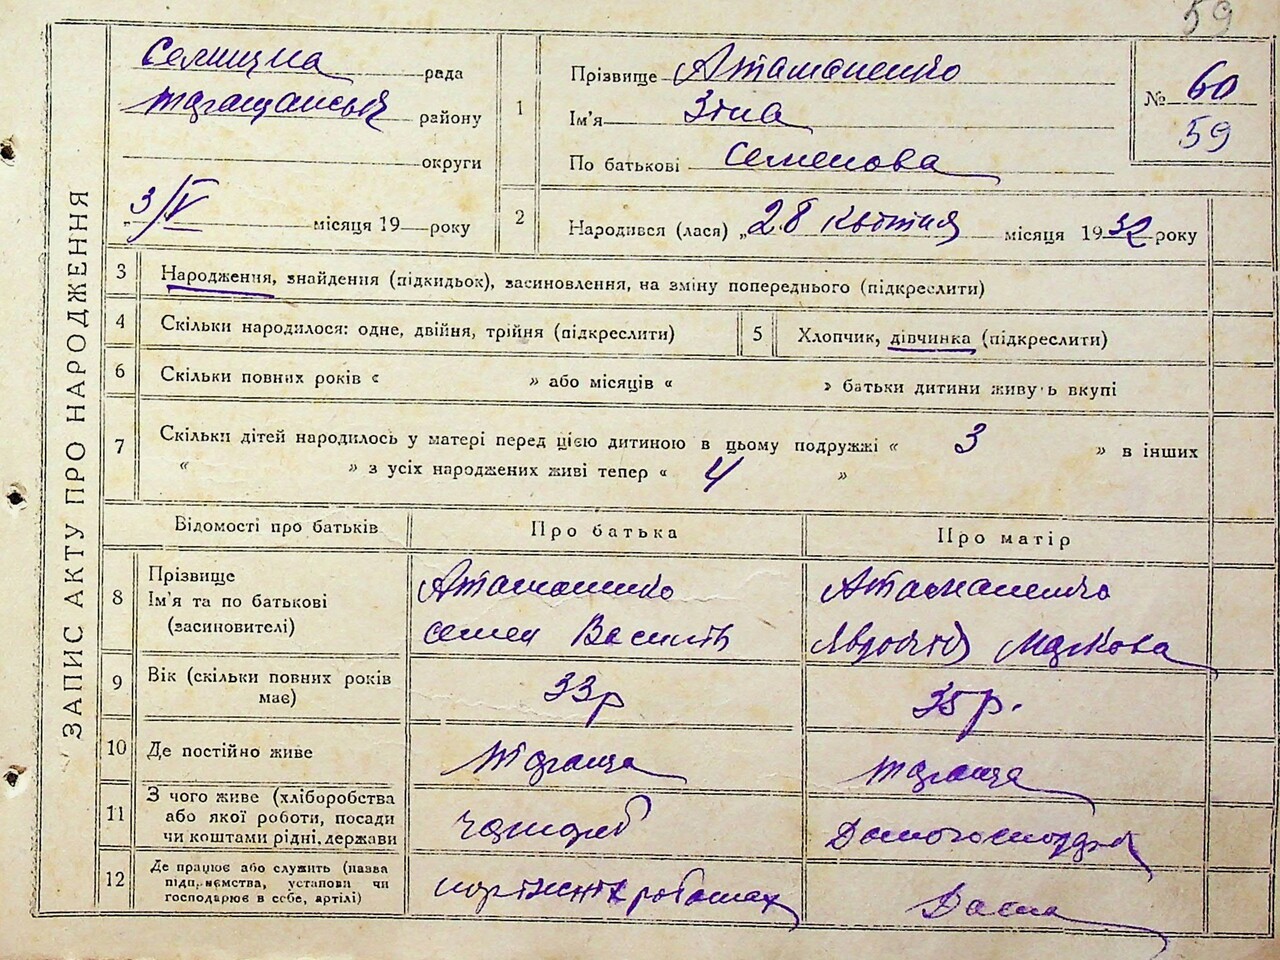 59
ЗАПИС АКТУ ПРО НАРОДЖЕННЯ
Селищна рада
району
округи
3/V місяця 19 року
1
Прізвище Атаманенко
Ім'я Зіна
По батькові Семенова
№ 60
59
2
Народився (лася) „28 квітня місяця 1932 року
3 Народження, знайдення (підкидьок), засиновлення, на зміну попереднього (підкреслити)
4 Скільки народилося: одне, двійня, трійня (підкреслити)
5 Хлопчик, дівчинка (підкреслити)
6 Скільки повних років « » або місяців « » батьки дитини живуть вкупі
7 Скільки дітей народилось у матері перед цією дитиною в цьому подружжі « 3 » в інших
« » з усіх народжених живі тепер « 4 »
Відомості про батьків Про батька Про матір
8 Прізвище
Ім'я та по батькові
(засиновителі)
Атаманенко
Семен
Атаманенко
Маркова
9 Вік (скільки повних років
має)
33р
35р.
10 Де постійно живе
11 З чого живе (хліборобства
або якої роботи, посади
чи коштами рідні, держави
12 Де працює або служить (назва
підприємства, установи чи
господарює в себе, артілі)
роботах